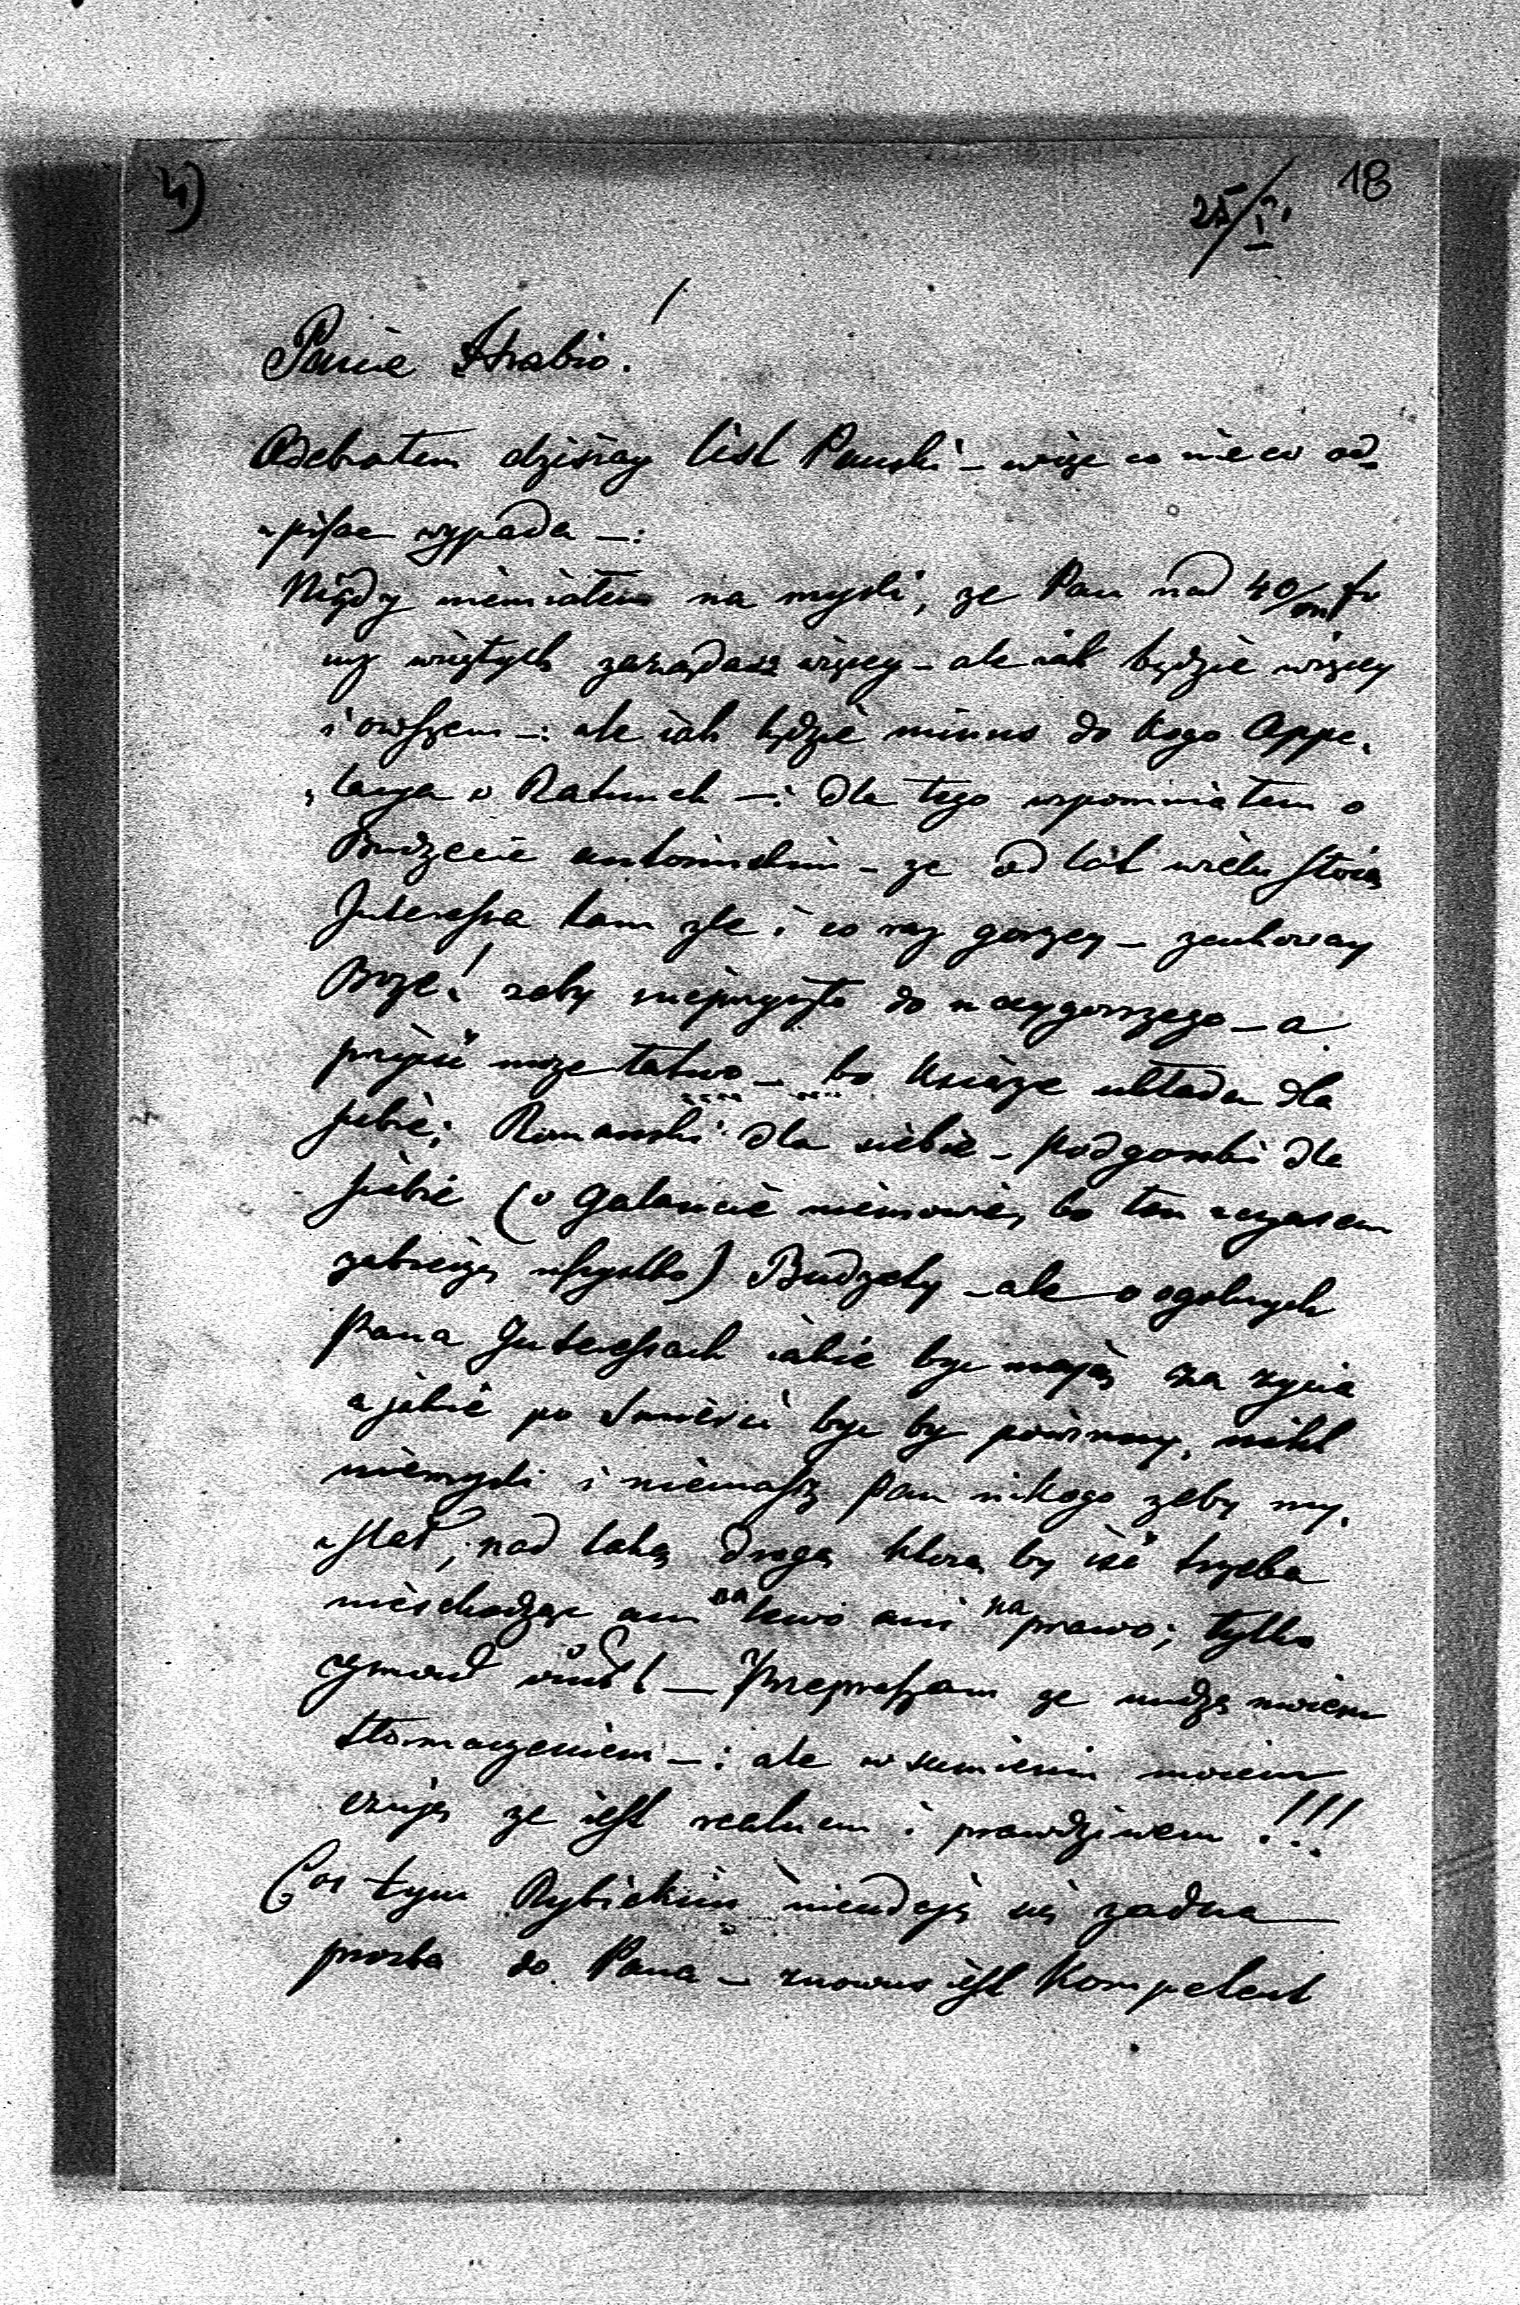 4)
25/I
18
Panie Hrabio!
Odebrałem dzisiay list Panski – więc co nieco od-
-pisac wypada –:
Nigdy niemiałem na mysli, ze Pan nad 40/m
wziętych zaządasz więcy – ale iak będzie więcy
i owszem –: ale iak będzie minus do kogo Appe-
-lacya o Ratunek –: dla tego wspomniałem o
Budzecie antoninskim – ze od lat wielu stoią
Interessa tam zle i co raz gorzey – zachoway
Boze! zeby nieprzyszło do naygorszego – a
przyisć moze łatwo – bo Ksiąze układa dla
siebie; Romanski dla siebie – Podgorski dla
siebie (o Galancie niemowię, bo ten z czasem
zabierze wszystko) Budzety – ale o ogolnych
Pana Interessach iakie byc mają za zycia
a jakie po smierci byc by powinny, nikt
niemysli i niemasz Pan nikogo zeby my-
-slał, nad taką drogą ktorą by isć trzeba
nieschodząc ani na lewo ani na prawo; tylko
– Przepraszam ze nudzę moiem
tłomaczeniem –: ale w sumieniu moiem
czuję ze iest realnem i prawdziwem!!!
Cos tym Rybickim nieudaje się zadna
prozba do Pana – znowus iest Kompetent